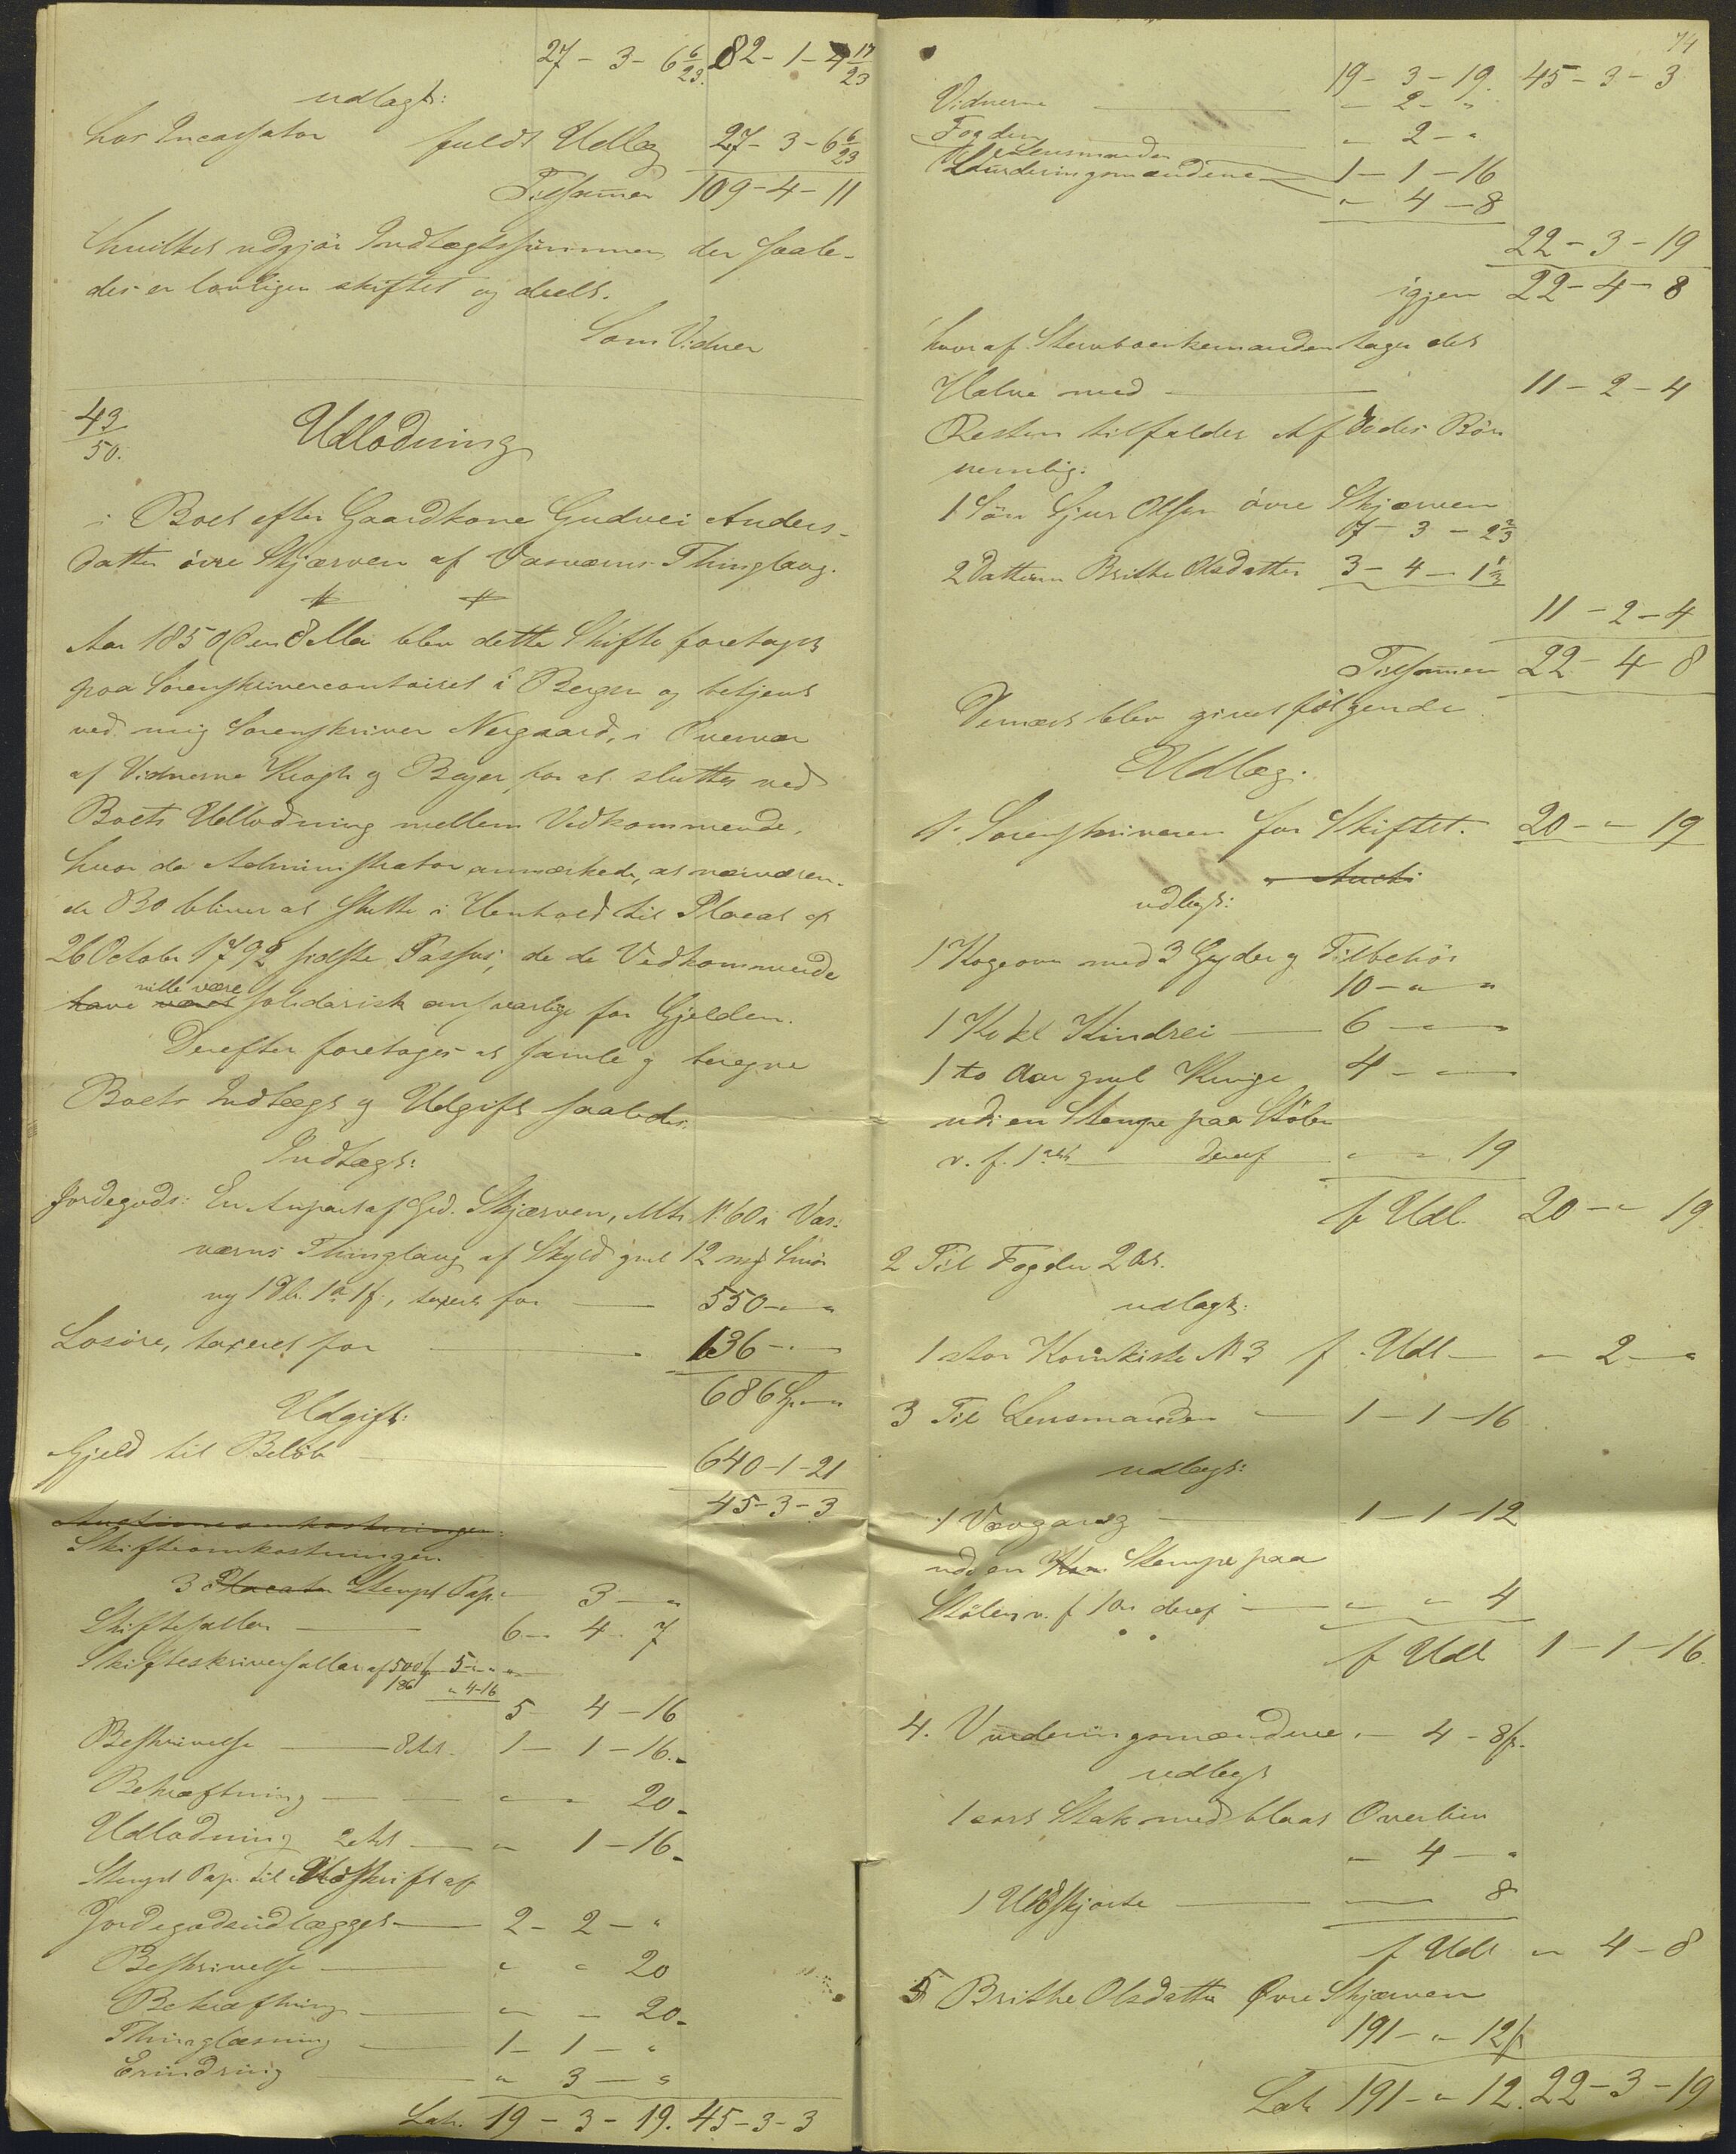 27 - 3 - 6 6/23. 82 - 1 - 4 17/23
udlagt:
har Incassator fuldt Udlæg 27 - 3 - 6 6/23
Tilsammen 109 - 4 - 11
hvilket udgjør Indtægtssummen, der saale-
des er lovligen skiftet og deelt.
Som Vidner
43/50.
Udlodning
i Boet efter Gaardkone Gudvei Anders-
datter övre Skjærven af Vasværns Thinglaug.
Aar 1850 den 8 Mai blev dette Skifte foretaget
paa Sorenskrivercontoiret i Bergen og betjent
ved mig Sorenskriver Nergaard, i Overvær
af Vidnerne Krogh og Bøyer, for at sluttes ved
Boets Udlodning mellem Vedkommende,
hvor da Administrator anmærkede, at nærværen-
de Bo bliver at slutte i Henhold til Placat af
26 October 1792 sidste Passus, da de Vedkommende
ville være
have været solidarisk ansvarlige for Gjelden.
Derefter foretoges at samle og beregne
Boets Indtægt og Udgift saaledes
Indtægt:
Jordegods: En Anpart af Grd. Skjærven, Mtr. N. 60 i Vas-
værns Thinglaug af Skyld gml 12 mkr Smør
ny 1 db. 1 o 1 f., taxeret for 550 - " - "
Løsöre, taxeret for 136 - " - "
686 Sp. - "
Udgift:
Gjeld til Beløb 640 - 1 - 21
45 - 3 - 3
Auctionsomkostninger:
Skifteomkostninger.
3 Placater Stempl. Pap. " 3 - "
Skiftesallær 6 - 4 - 7
Skifteskriversallær af 500 Sp 5 - " - "
186 " 4 - 16
5 - 4 - 16
Beskrivelse 8 Ark. 1 - 1 - 16.
Bekræftning " - " 20.
Udlodning 2 Ark " 1 - 16.
Stempl. Pap. til Udskrift af
Jordegodsudlægget 2 - 2 - "
Beskrivelse " " 20
Bekræftning " - " 20.
Thinglæsning 1 - 1 - "
Erindring " 3 - "
Lat. 19 - 3 - 19. 45 - 3 - 3
74
19 - 3 - 19. 45 - 3 - 3
Vidnerne " 2 - "
Fogden " 2 - "
Lensmanden 1 - 1 - 16
Vurderingsmændene " 4 - 8
22 - 3 - 19
igjen 22 - 4 - 8
hvoraf Stervboenkemanden tager det
Halve med 11 - 2 - 4
Resten tilfalder Afdødes Börn
nemlig:
1 Søn Sjur Olsen övre Skjærven
7 - 3 - 2 2/3
2 Datteren Brithe Olsdatter 3 - 4 - 1 1/3
11 - 2 - 4
Tilsammen 22 - 4 - 8
Dernæst blev givet fölgende
Udlæg.
1. Sorenskriveren for Skiftet. 20 - " - 19
Aucti
udlagt:
1 Kogeovn med 3 Gryder og Tilbehör
10 - " - "
1 Ko kl Kindrei 6 - " - "
1 to Aar gml Kvige 4 - " - "
udi en Stampe paa Stölen
v. f. 1 deraf " - " 19
f Udl. 20 - " - 19
2 Til Fogden 2 Ort.
udlagt:
1 stor Kornkiste N. 3 f. Udl " 2 - "
3 Til Lensmanden 1 - 1 - 16
udlagt:
1 Vævgang 1 - 1 - 12
udi en Stampe paa
Stölen v. f. 1 Ort deraf " " 4
f Udl 1 - 1 - 16.
4. Vurderingsmændene " - 4 - 8 s.
udlagt
1 sort Stak med blaat Overliv
" 4 - "
1 Uldskjorte " - " 8
f Udl " 4 - 8
5 Brithe Olsdatter Övre Skjærven
191 - " - 12 s
Lat. 191 - " - 12. 22 - 3 - 19